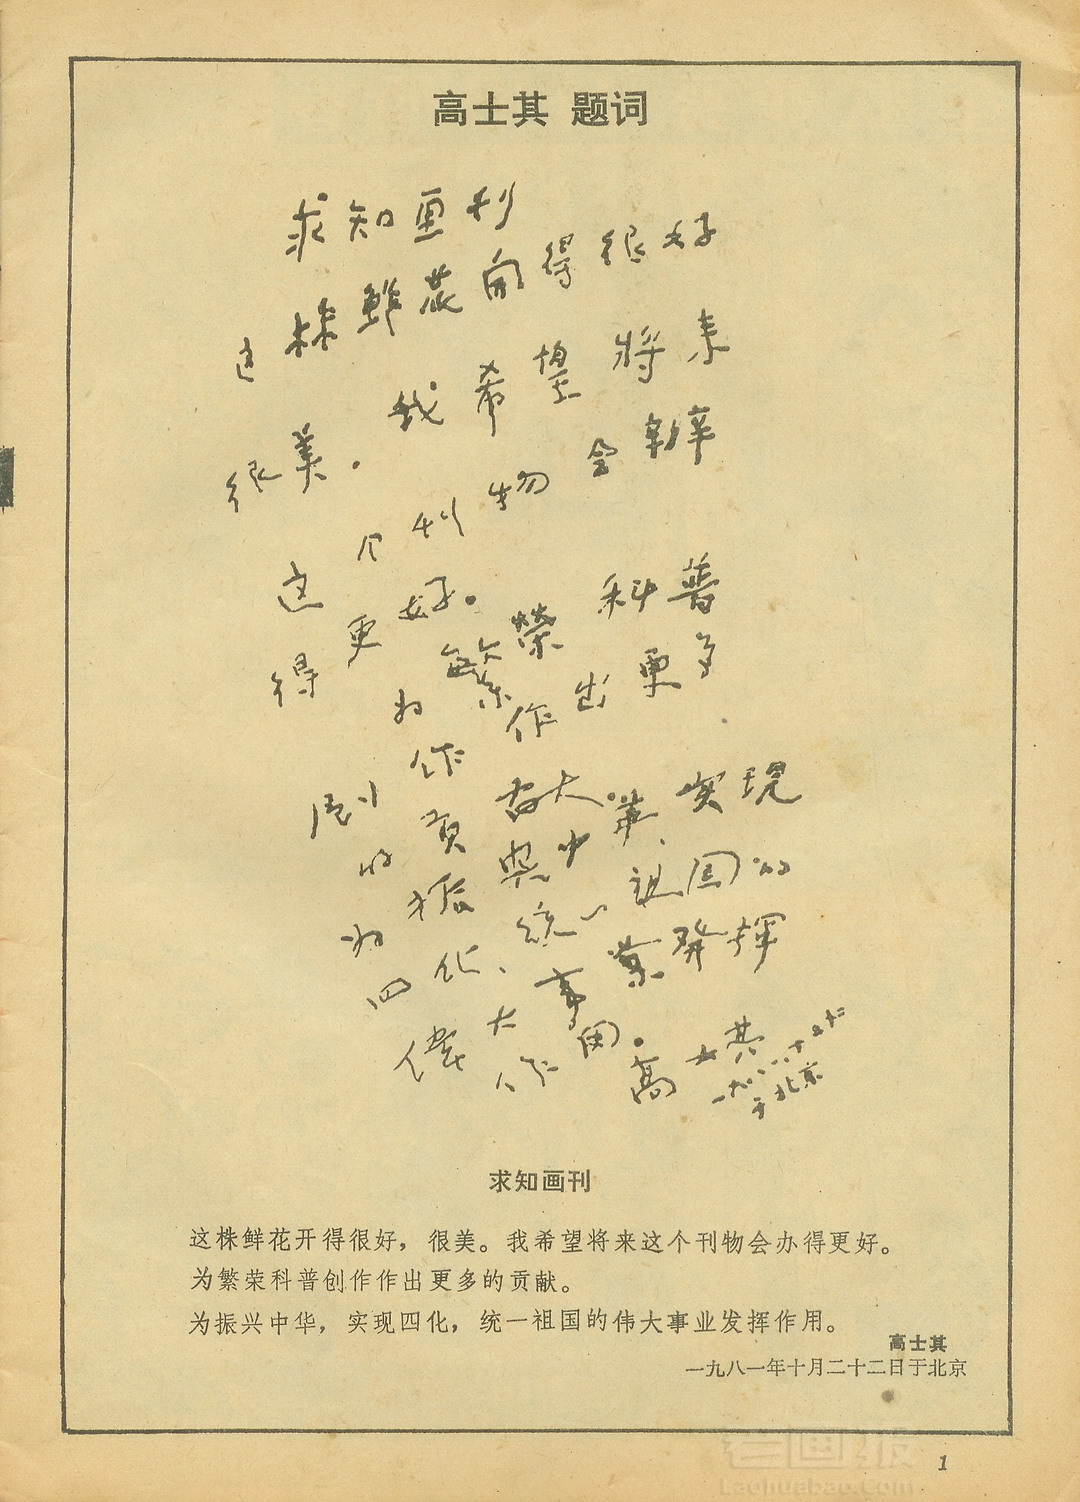 高士其 题词
求知画刊
这株鲜花开得很好
很美。我希望将来
这个刊物会辦
得更好。
为繁榮科普
创作作出更多
的贡献。
为振興中華、实现
四化、统一祖国的
偉大事業發揮
作用。
高士其
于北京
求知画刊
这株鲜花开得很好，很美。我希望将来这个刊物会办得更好。
为繁荣科普创作作出更多的贡献。
为振兴中华，实现四化，统一祖国的伟大事业发挥作用。
高士其
一九八一年十月二十二日于北京
1
老画报
Laohuabao.Com